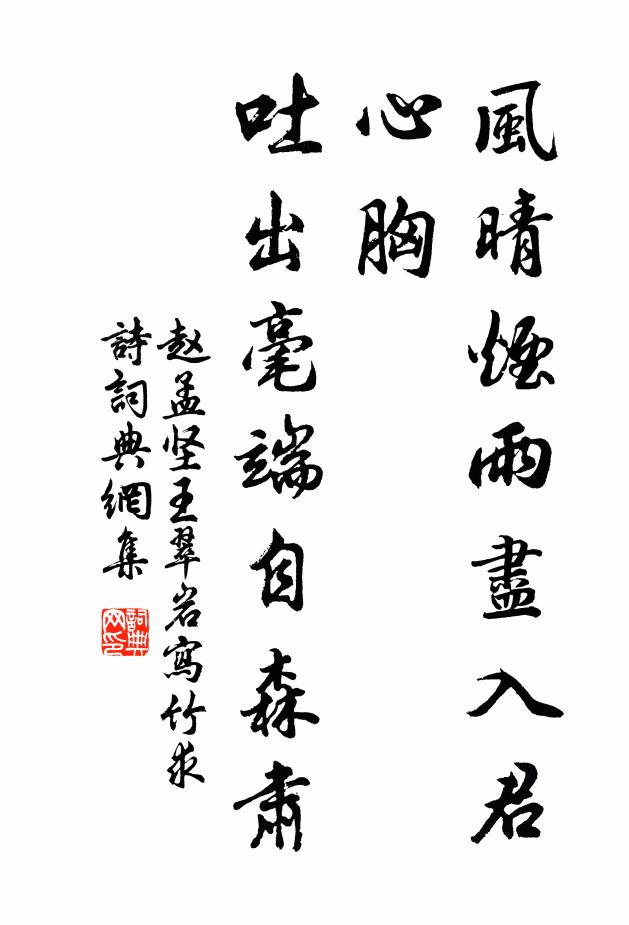 風晴煙雨盡入君
心胸
吐出毫端自森肅
赵孟坚王翠岩寫竹求
詩詞典網集
詞典網印